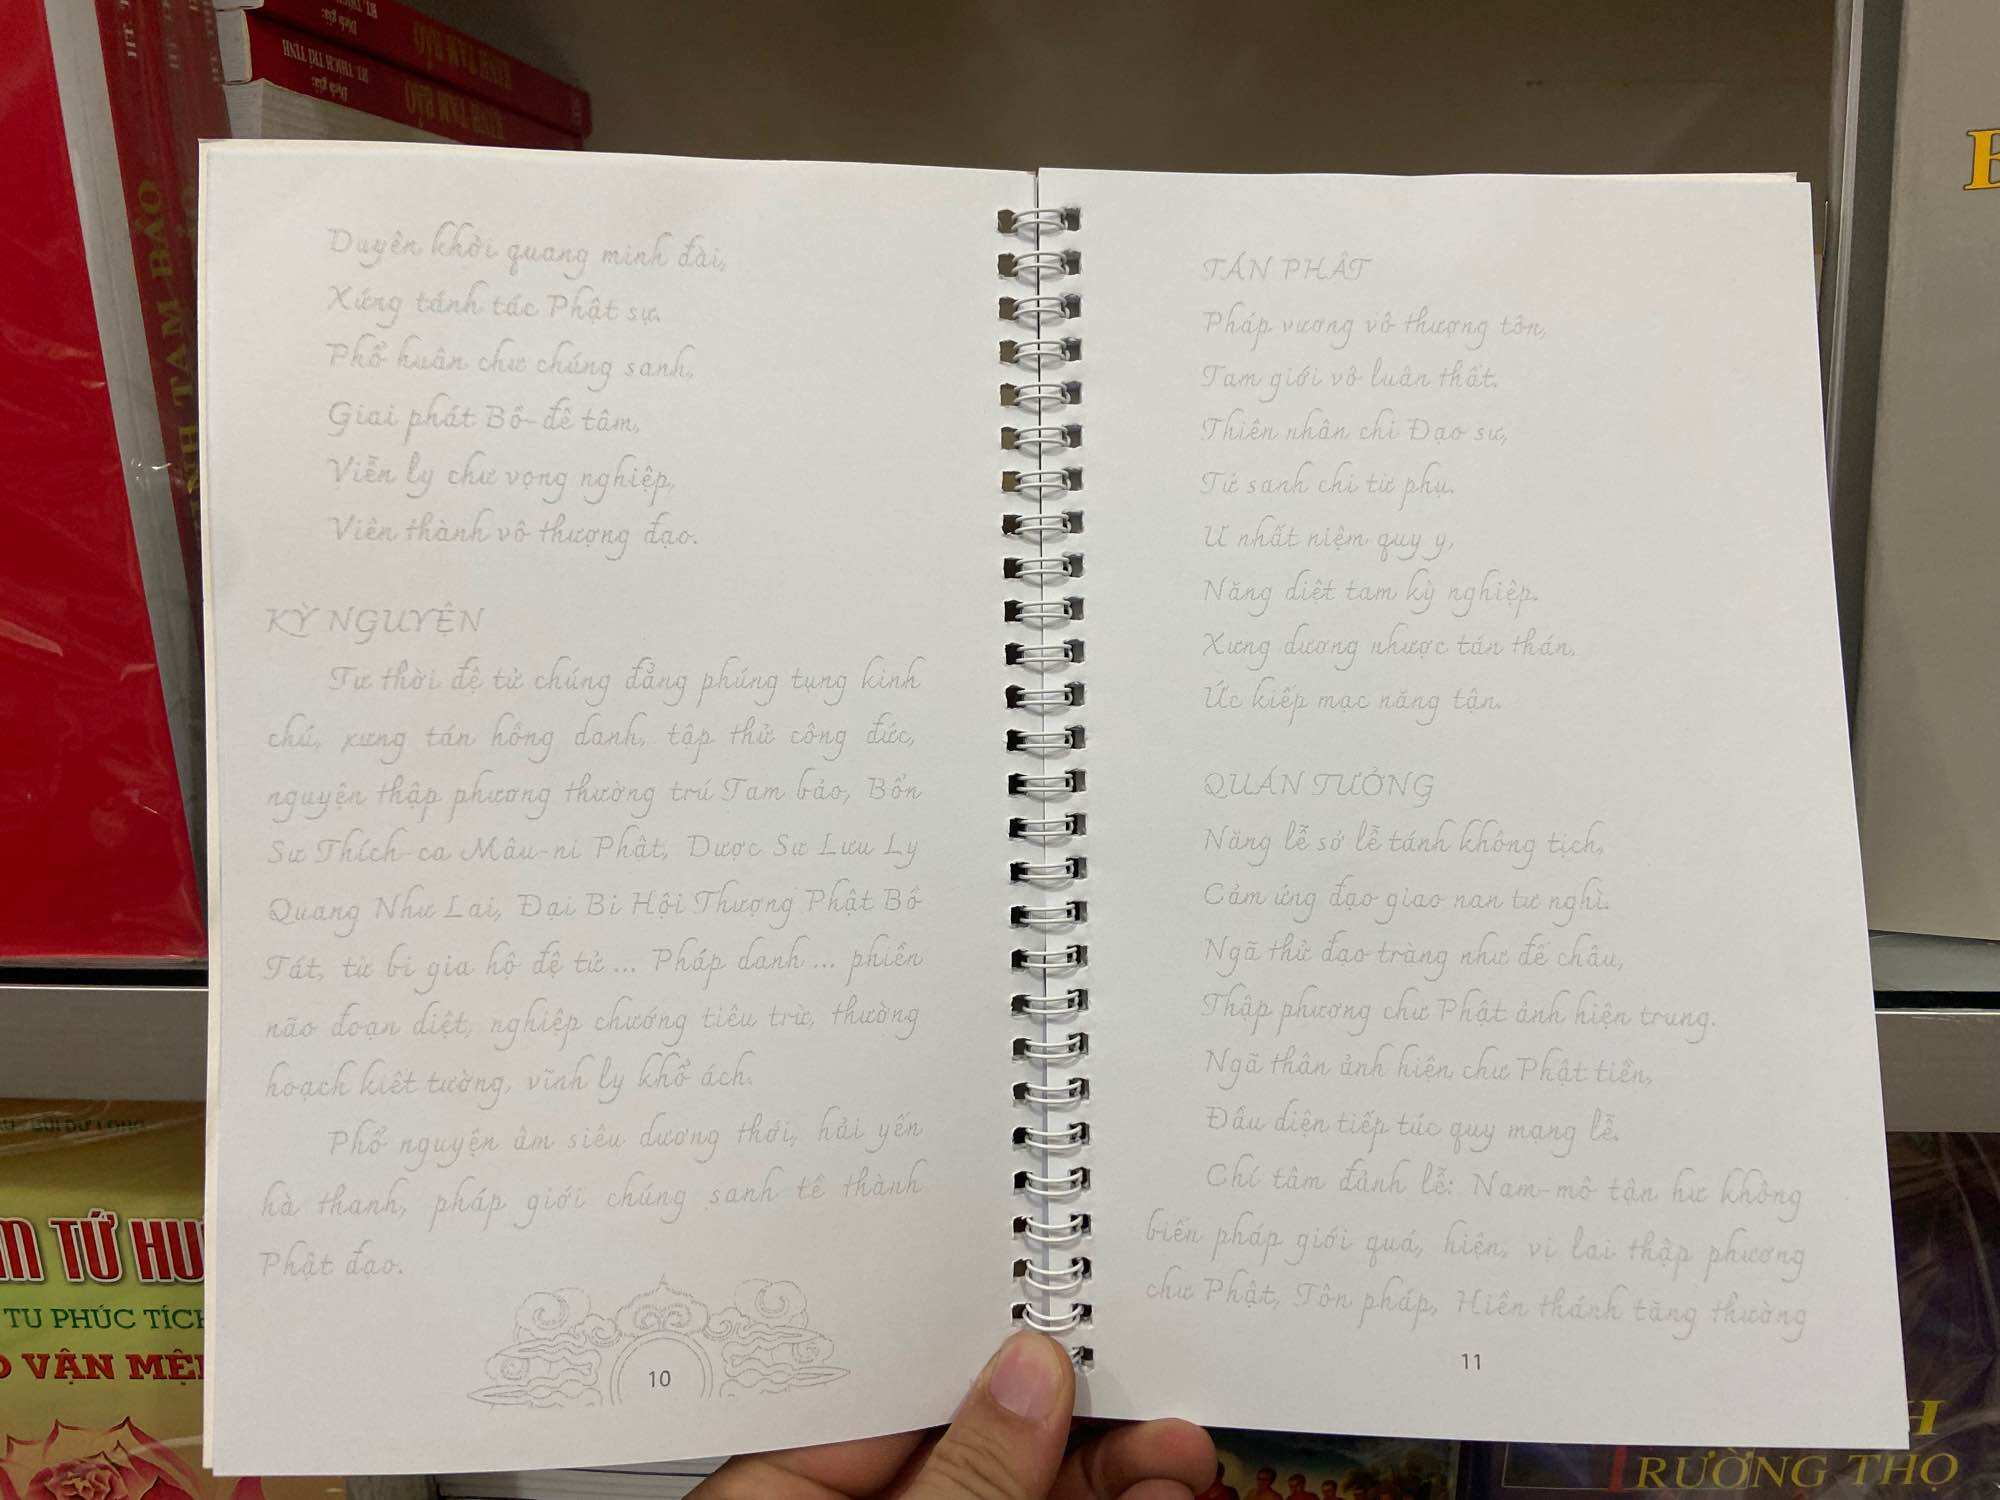 Duyên khởi quang minh đài,
Xứng tánh tác Phật sự.
Phổ huân chư chúng sanh,
Giai phát Bồ-đề tâm,
Viễn ly chư vọng nghiệp,
Viên thành vô thượng đạo.
KỲ NGUYỆN
Tư thời đệ tử chúng đẳng phúng tụng kinh
chú, xưng tán hồng danh, tập thử công đức,
nguyện thập phương thường trú Tam bảo, Bổn
Sư Thích-ca Mâu-ni Phật, Dược Sư Lưu Ly
Quang Như Lai, Đại Bi Hội Thượng Phật Bồ
Tát, từ bi gia hộ đệ tử ... Pháp danh ... phiền
não đoạn diệt, nghiệp chướng tiêu trừ, thường
hoạch kiết tường, vĩnh ly khổ ách.
Phổ nguyện âm siêu dương thới, hải yến
hà thanh, pháp giới chúng sanh tề thành
Phật đạo.
10
TÁN PHẬT
Pháp vương vô thượng tôn,
Tam giới vô luân thất.
Thiên nhân chi Đạo sư,
Tứ sanh chi từ phụ.
Ư nhất niệm quy y,
Năng diệt tam kỳ nghiệp.
Xưng dương nhược tán thán,
Ức kiếp mạc năng tận.
QUÁN TƯỞNG
Năng lễ sở lễ tánh không tịch,
Cảm ứng đạo giao nan tư nghì.
Ngã thử đạo tràng như đế châu,
Thập phương chư Phật ảnh hiện trung.
Ngã thân ảnh hiện chư Phật tiền,
Đầu diện tiếp túc quy mạng lễ.
Chí tâm đảnh lễ: Nam-mô tận hư không
biến pháp giới quá, hiện, vị lai thập phương
chư Phật, Tôn pháp, Hiền thánh tăng thường
11
KINH TAM BẢO
Dịch giả:
HT. THÍCH TRÍ TỊNH
KINH TAM BẢO
Dịch giả:
TAM BẢO
TỨ HU
TU PHÚC TÍCH
VẬN MỆ
RƯỜNG THỌ